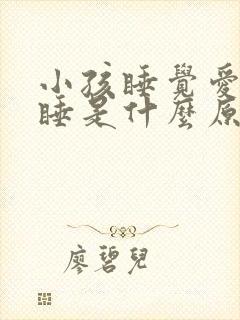 小孩睡覺愛
睡是什麼原
廖碧兒